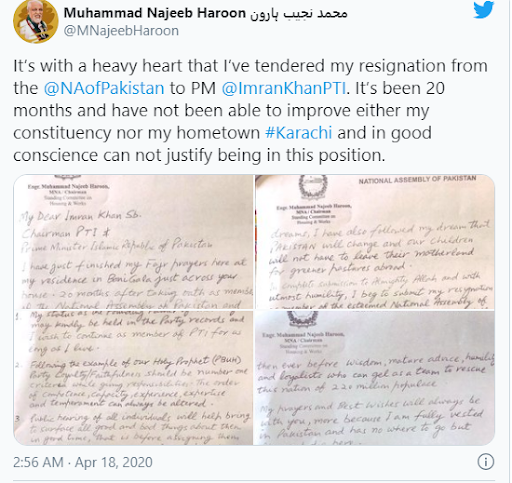 Muhammad Najeeb Haroon محمد نجيب ہارون
@MNajeebHaroon
It's with a heavy heart that I've tendered my resignation from
the @NAofPakistan to PM @ImranKhanPTI. It's been 20
months and have not been able to improve either my
constituency nor my hometown #Karachi and in good
conscience can not justify being in this position.
Engr. Muhammad Najeeb Haroon,
MNA/Chairman
Standing Committee on
Housing & Works
My Dear Imran Khan Sb.
Chairman PTI &
Prime Minister Islamic Republic of Pakistan
I have just finished my Fajr prayers here at
my residence in BaniGala just across your
house. 20 months after taking oath as member
of the National Assembly of Pakistan and
1. My status as the Founding
may kindly be held in the Party records and
I wish to continue as member of PTI for as
long as I live.
2. Following the example of our Holy Prophet (PBUH)
Party Loyalty/Faithfulness should be number one
criteria while giving responsibilities. The order
of competence, capacity, experience, expertise
and temperament can always be altered.
3. Public hearing of all individuals will help bring
to surface all good and bad things about them
in good time, that is before assigning them
NATIONAL ASSEMBLY OF PAKISTAN
Engr. Muhammad Najeeb Haroon,
MNA/Chairman
Standing Committee on
Housing & Works
dreams, I have also followed my dream that
Pakistan will change and our children
will not have to leave their motherland
for greener pastures abroad.
In complete submission to Almighty Allah and with
utmost humility, I beg to submit my resignation
of the esteemed National Assembly of
Engr. Muhammad Najeeb Haroon,
MNA/Chairman
Standing Committee on
Housing & Works
then ever before wisdom, mature advice, humility
and loyalists who can gel as a team to rescue
this nation of 220 million populace
My prayers and Best Wishes will always be
with you, more because I am fully vested
in Pakistan and has no where to go but
2:56 AM · Apr 18, 2020